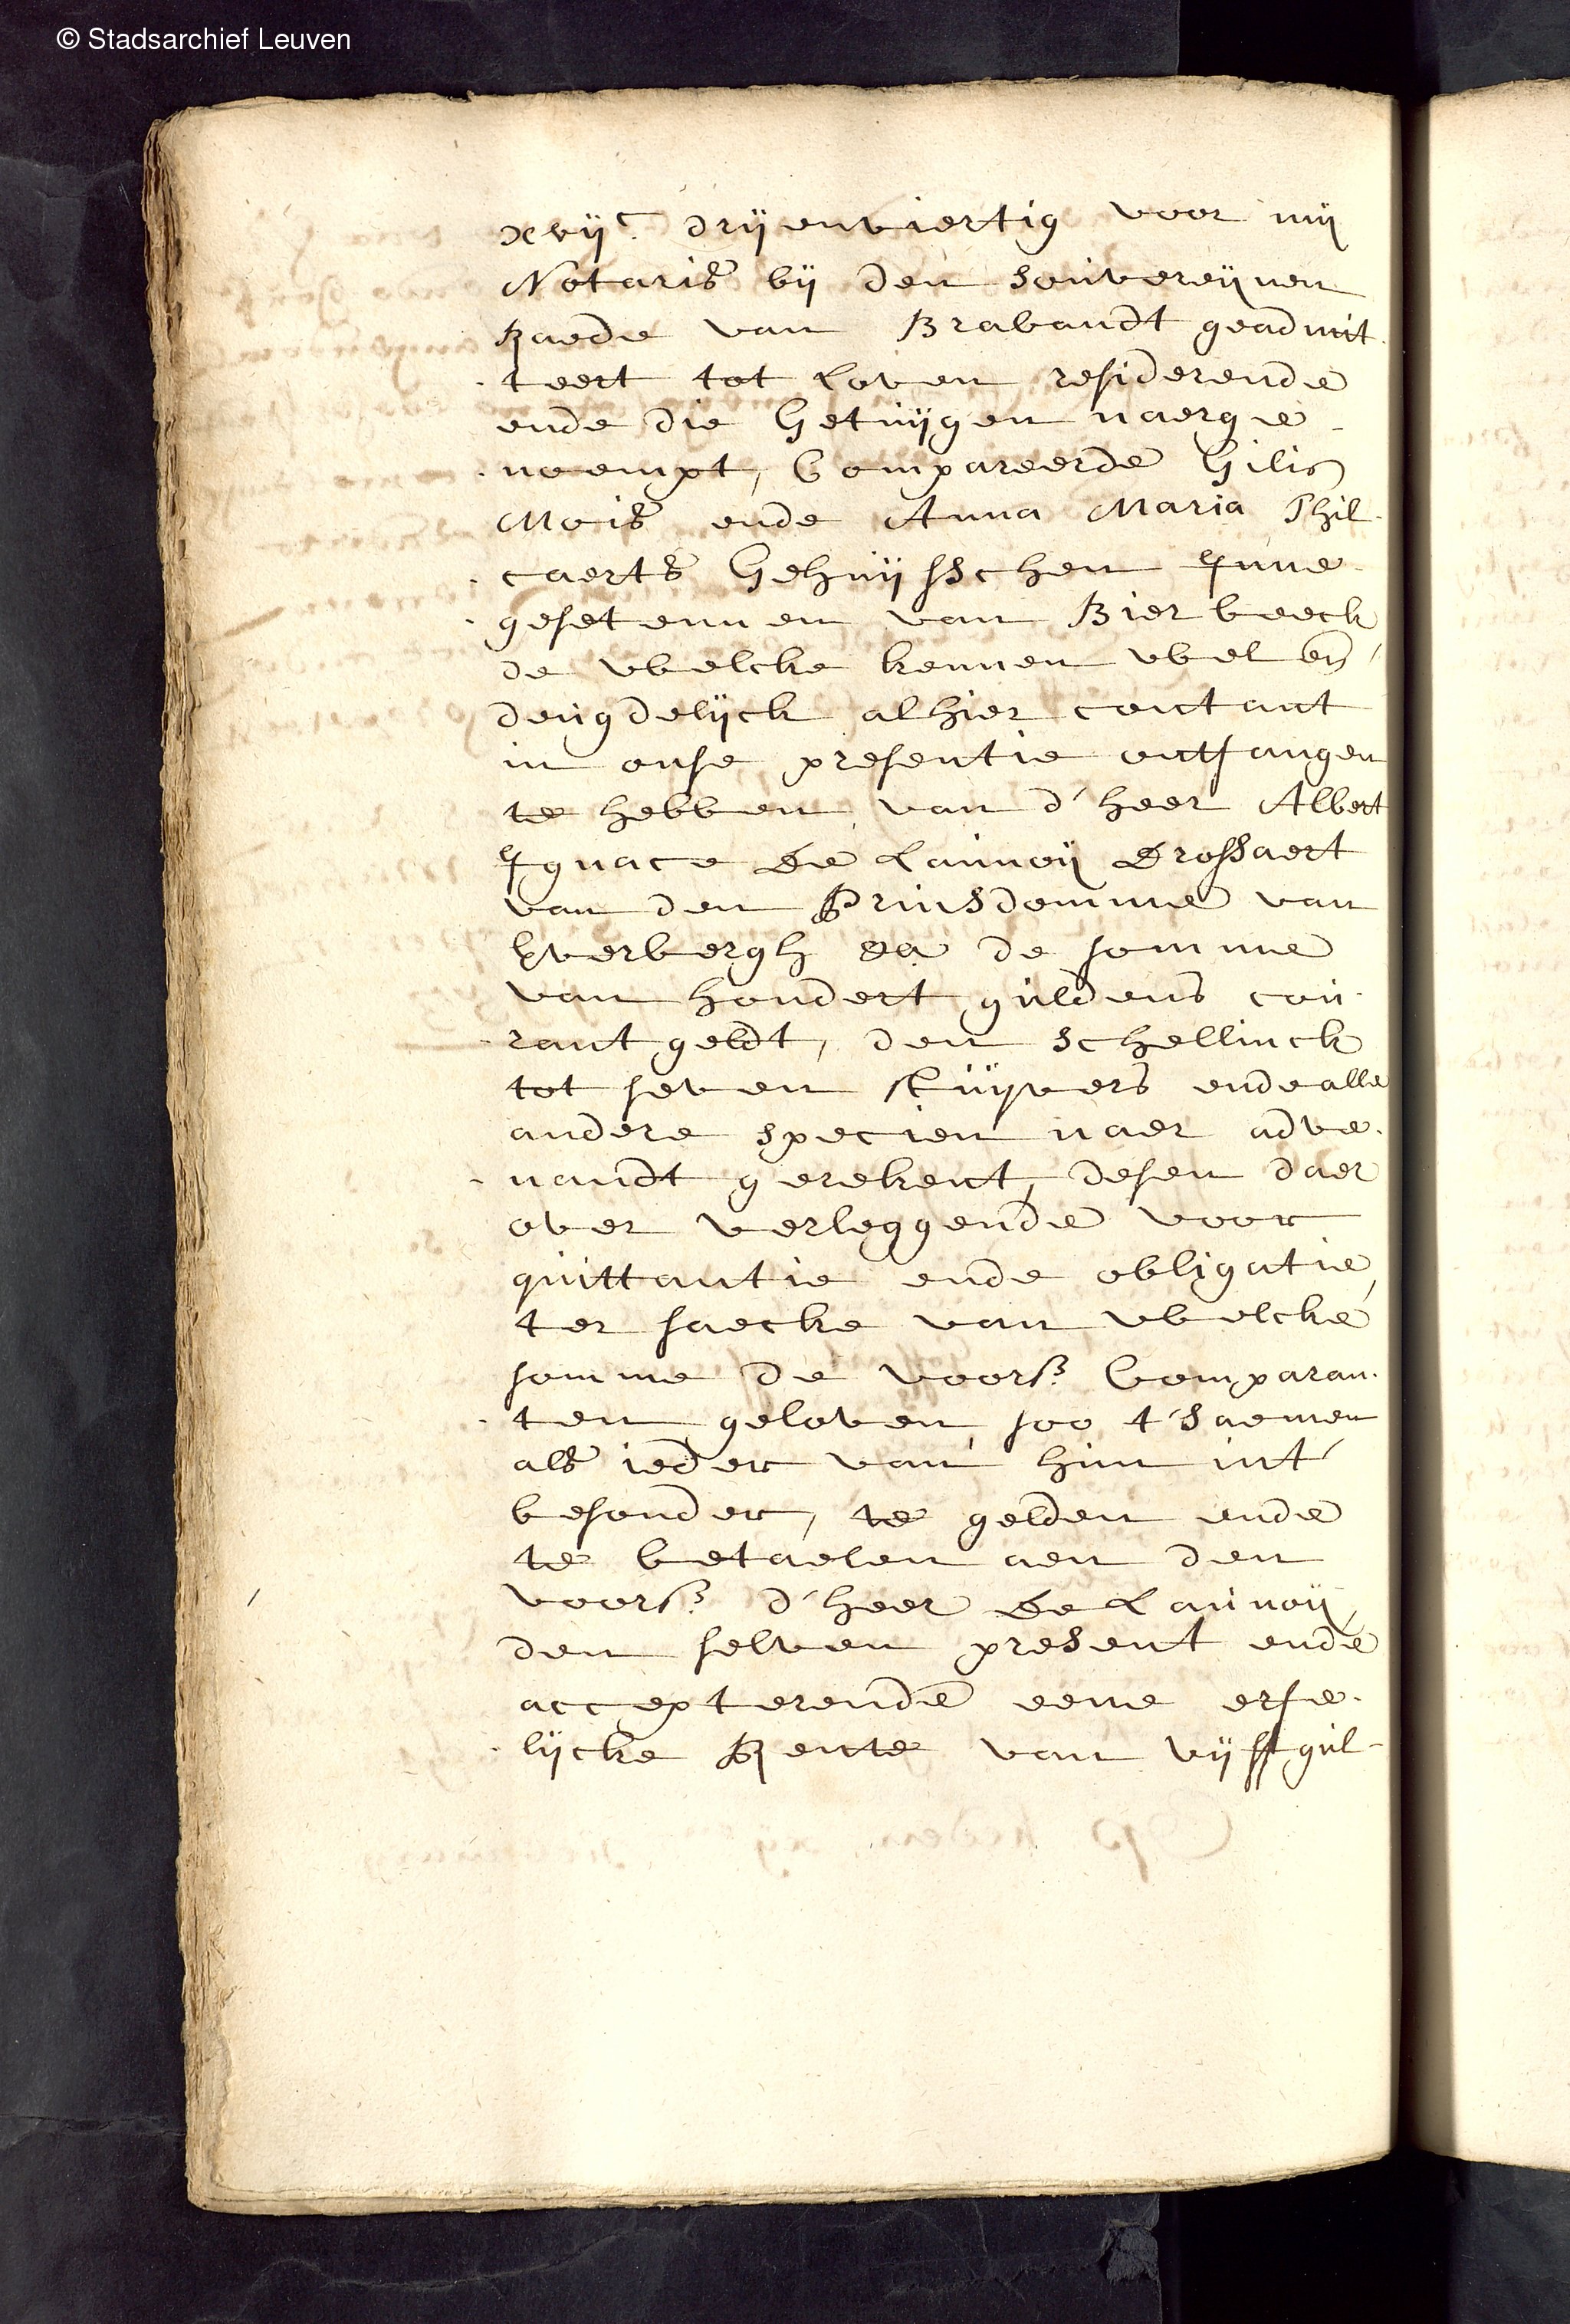 © Stadsarchief Leuven
xvijc. drij enviertig voor mij
Notaris bij den souvereijnen
Raede van Brabandt geadmit-
-teert tot Loven residerende
ende die Getuijgen naerge-
-noempt, Compareerde Gilis
Mois ende Anna Maria Phil-
-caerts Gehuijsschen Inne-
-gesetennen van Bierbeeck
de welcke kennen wel en
deugdelijck alhier contant
in onse presentie ontfangen
te hebben van d'heer Albert
Ignace De Launoij Drossaert
van den Prinsdomme van
Everbergh &a de somme
van hondert guldens cou-
-rant geldt, den schellinck
tot seven stuijvers ende alle
andere specien naer adve-
-nandt gerekent, desen daer
over verleggende voor
quittantie ende obligatie,
ter saecke van welcke
somme de voors. Comparan-
-ten geloven soo t'saemen
als ieder van hun int
besonder, te gelden ende
te betaelen aen den
voors. d'heer De Launoij,
den selven present ende
accepterende eene erfe-
-lijcke Rente van vijff gul-